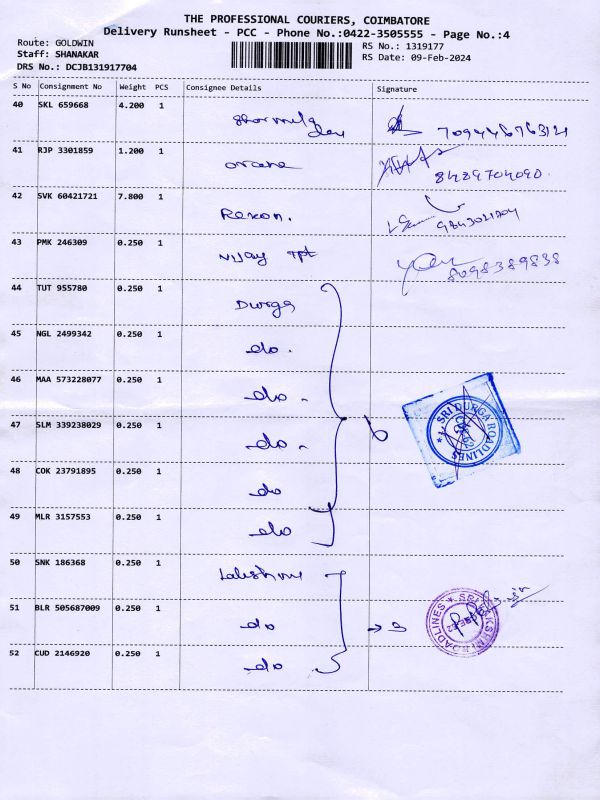 THE PROFESSIONAL COURIERS, COIMBATORE
Delivery Runsheet - PCC - Phone No.:0422-3505555 - Page No.:4
Route: GOLDWIN
Staff: SHANAKAR
DRS No.: DCJB131917704
RS No.: 1319177
RS Date: 09-Feb-2024
S No Consignment No Weight PCS Consignee Details Signature
40 SKL 659668 4.200 1
41 RJP 3301859 1.200 1
8489704090
42 SVK 60421721 7.800 1 Rexon.
43 PMK 246309 0.250 1 Vijay Tpt
8098389838
44 TUT 955780 0.250 1 Durga
45 NGL 2499342 0.250 1 do.
46 MAA 573228077 0.250 1 do -
47 SLM 339238029 0.250 1 do -
6
SRI DURGA ROADLINES
48 COK 23791895 0.250 1 do
49 MLR 3157553 0.250 1 do
50 SNK 186368 0.250 1 Lakshmi
51 BLR 505687009 0.250 1 do
→ 3
SRI LAKSHMI ROADLINES
52 CUD 2146920 0.250 1 do